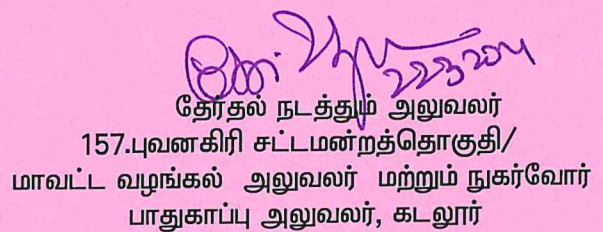 தேர்தல் நடத்தும் அலுவலர்
157.புவனகிரி சட்டமன்றத்தொகுதி/
மாவட்ட வழங்கல் அலுவலர் மற்றும் நுகர்வோர்
பாதுகாப்பு அலுவலர், கடலூர்